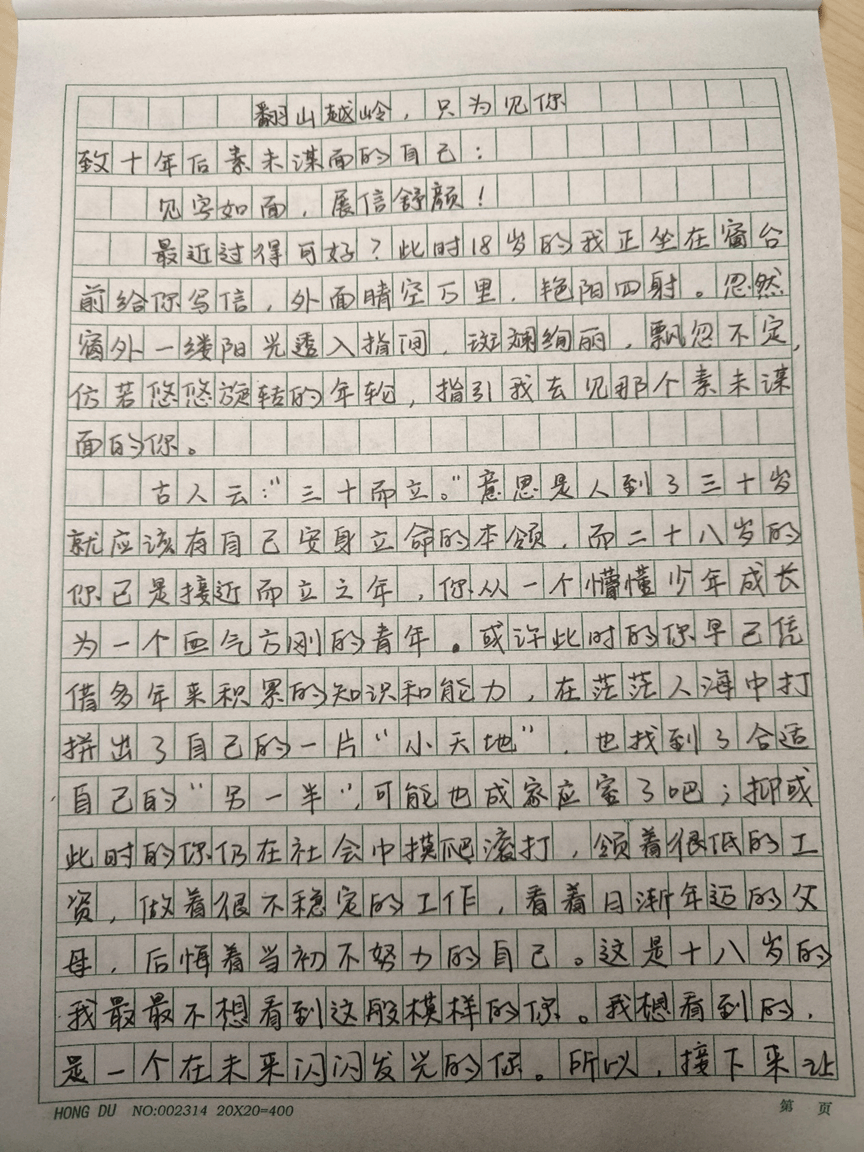 翻山越岭，只为见你
致十年后素未谋面的自己：
见字如面，展信舒颜！
最近过得可好？此时18岁的我正坐在窗台
前给你写信，外面晴空万里，艳阳四射。忽然
窗外一缕阳光透入指间，斑斓绚丽，飘忽不定，
仿若悠悠旋转的年轮，指引我去见那个素未谋
面的你。
古人云：“三十而立。”意思是人到了三十岁
就应该有自己安身立命的本领，而二十八岁的
你已是接近而立之年，你从一个懵懂少年成长
为一个血气方刚的青年。或许此时的你早已凭
借多年来积累的知识和能力，在茫茫人海中打
拼出了自己的一片“小天地”，也找到了合适
自己的“另一半”，可能也成家应室了吧；抑或
此时的你仍在社会中摸爬滚打，领着很低的工
资，做着很不稳定的工作，看着日渐年迈的父
母，后悔着当初不努力的自己。这是十八岁的
我最最不想看到这般模样的你。我想看到的，
是一个在未来闪闪发光的你。所以，接下来让
HONG DU NO:002314 20X20=400
第 页